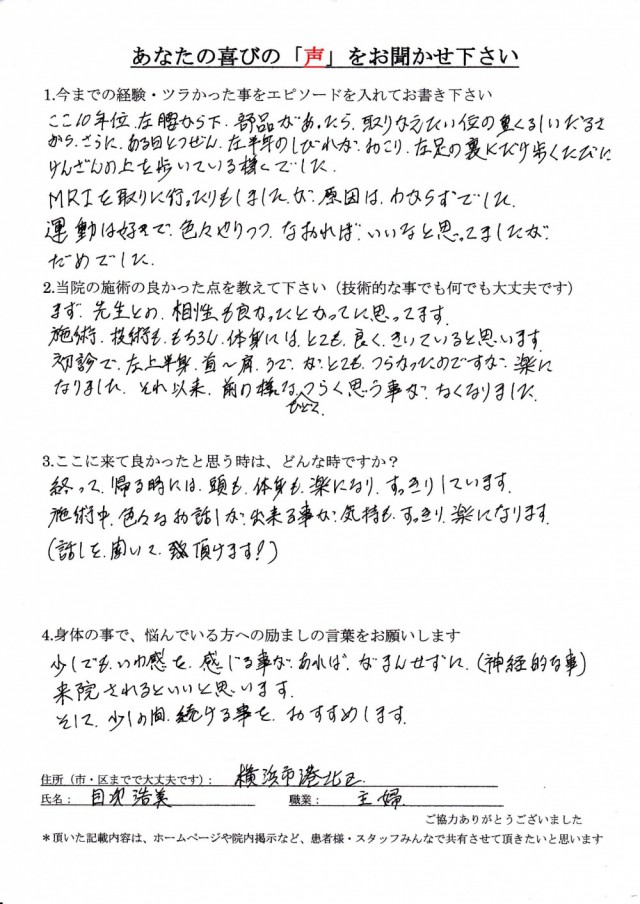 あなたの喜びの「声」をお聞かせ下さい
1.今までの経験・ツラかった事をエピソードを入れてお書き下さい
ここ10年位、左腰から下、部品があったら、取りかえたい位の重くるしいだるさ
から、さらに、ある日とつぜん、左半身のしびれが、おこり、左足の裏はだけ歩くたびに
けんざんの上を歩いている様でした。
MRIを取りに行ったりもしましたが、原因は、わからずでした。
運動は好きで、色々やりつつ、なおれば、いいなと思ってましたが、
だめでした。
2.当院の施術の良かった点を教えて下さい（技術的な事でも何でも大丈夫です）
まず、先生との、相性も良かったとかってに思ってます。
施術、技術も、もちろん、体身には、とても、良く、きいていると思います。
初診で、左上半身、首～肩、うで、が、とても、つらかったのですが、楽に
なりました。それ以来、前の様な、ひどく、つらく思う事が、なくなりました。
3.ここに来て良かったと思う時は、どんな時ですか？
終って、帰る時には、頭も、体身も、楽になり、すっきりしています。
施術中、色々なお話しが、出来る事が、気持も、すっきり、楽になります。
（話しを、聞いて、頂けます！）
4.身体の事で、悩んでいる方への励ましの言葉をお願いします
少しでも、いわ感を、感じる事が、あれば、がまんせずに、（神経的な事）
来院されるといいと思います。
そして、少しの間、続ける事を、おすすめします。
住所（市・区までで大丈夫です）： 横浜市港北区
氏名： 目次浩美 職業： 主婦
ご協力ありがとうございました
＊頂いた記載内容は、ホームページや院内掲示など、患者様・スタッフみんなで共有させて頂きたいと思います